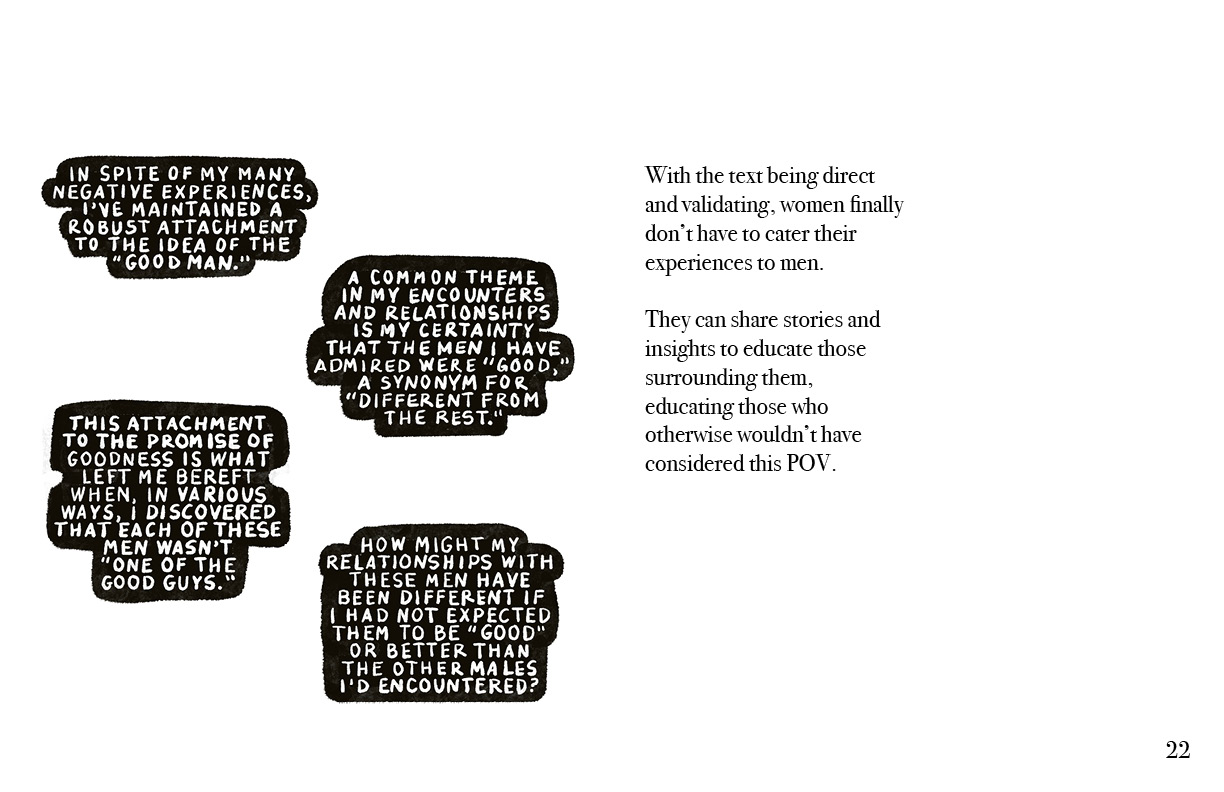 IN SPITE OF MY MANY
NEGATIVE EXPERIENCES,
I'VE MAINTAINED A
ROBUST ATTACHMENT
TO THE IDEA OF THE
"GOOD MAN."
A COMMON THEME
IN MY ENCOUNTERS
AND RELATIONSHIPS
IS MY CERTAINTY
THAT THE MEN I HAVE
ADMIRED WERE "GOOD,"
A SYNONYM FOR
"DIFFERENT FROM
THE REST."
THIS ATTACHMENT
TO THE PROMISE OF
GOODNESS IS WHAT
LEFT ME BEREFT
WHEN, IN VARIOUS
WAYS, I DISCOVERED
THAT EACH OF THESE
MEN WASN'T
"ONE OF THE
GOOD GUYS."
HOW MIGHT MY
RELATIONSHIPS WITH
THESE MEN HAVE
BEEN DIFFERENT IF
I HAD NOT EXPECTED
THEM TO BE "GOOD"
OR BETTER THAN
THE OTHER MALES
I'D ENCOUNTERED?
With the text being direct
and validating, women finally
don't have to cater their
experiences to men.
They can share stories and
insights to educate those
surrounding them,
educating those who
otherwise wouldn't have
considered this POV.
22